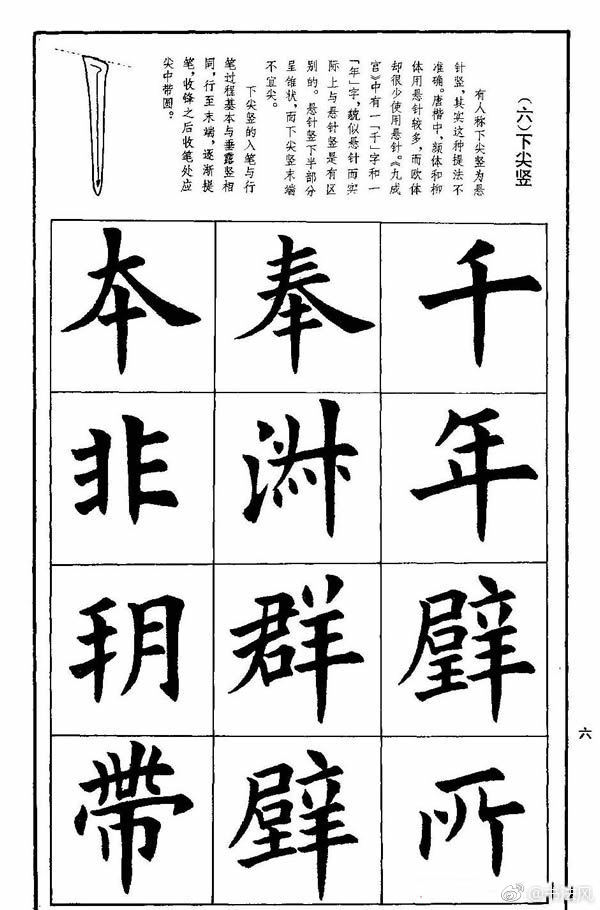 （六）下尖竖
有人称下尖竖为悬
针竖，其实这种提法不
准确。唐楷中，颜体和柳
体用悬针较多，而欧体
却很少使用悬针。《九成
宫》中有一「千」字和一
「年」字，貌似悬针而实
际上与悬针竖是有区
别的。悬针竖下半部分
呈锥状，而下尖竖末端
不宜尖。
下尖竖的入笔与行
笔过程基本与垂露竖相
同，行至末端，逐渐提
笔，收锋之后收笔处应
尖中带圆。
千
年
辟
所
奉
群
辟
本
非
帶
六
@书法风